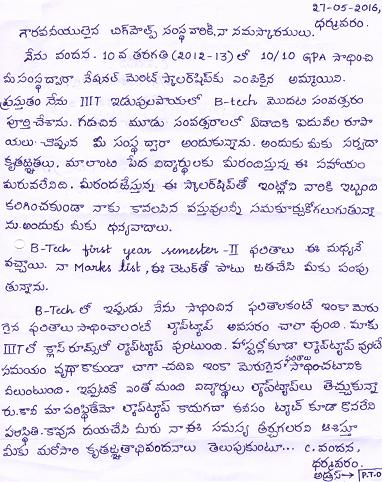 27-05-2016,
ధర్మవరం.
గౌరవనీయులైన బిగ్‌హెల్ప్ సంస్థ వారికి, నా నమస్కారములు.
నేను వందన. 10 వ తరగతి (2012-13) లో 10/10 GPA సాధించి
మీ సంస్థ ద్వారా నేషనల్ మెరిట్ స్కాలర్‌షిప్‌కు ఎంపికైన అమ్మాయిని.
ప్రస్తుతం నేను IIIT ఇడుపులపాయలో B-tech మొదటి సంవత్సరం
పూర్తి చేశాను. గడచిన మూడు సంవత్సరాలలో ఏడాదికి ఐదువేల రూపా
యలు చొప్పున మీ సంస్థ ద్వారా అందుకున్నాను. అందుకు మీకు సర్వదా
కృతజ్ఞతలు. మా లాంటి పేద విద్యార్థులకు మీరందిస్తున్న ఈ సహాయం
మరువలేనిది. మీరందజేస్తున్న ఈ స్కాలర్‌షిప్‌తో ఇంట్లోని వారికి ఇబ్బంది
కలిగించకుండా నాకు కావలసిన వస్తువులన్నీ సమకూర్చుకోగలుగుతున్నా
ను. అందుకు మీకు ధన్యవాదాలు.
B-Tech first year semester-II ఫలితాలు ఈ మధ్యనే
వచ్చాయి. నా Marks list, ఈ లెటర్‌తో పాటు జతచేసి మీకు పంపు
తున్నాను.
B-Tech లో ఇప్పుడు నేను సాధించిన ఫలితాలకంటే ఇంకా మెరు
గైన ఫలితాలు సాధించాలంటే ల్యాప్‌టాప్ అవసరం చాలా వుంది. మాకు
IIIT లో క్లాస్ రూమ్స్‌లో ల్యాప్‌టాప్ వుంటుంది. హాస్టల్లో కూడా ల్యాప్‌టాప్ వుంటే
సమయం వృథా కాకుండా బాగా చదివి ఇంకా మెరుగైన ఫలితాలు సాధించటానికి
వీలుంటుంది. ఇప్పటికే ఎంతో మంది విద్యార్థులు ల్యాప్‌టాప్‌లు తెచ్చుకున్నా
రు. కానీ మా పరిస్థితేమో ల్యాప్‌టాప్ కాదుగదా కనీసం ట్యాబ్ కూడా కొనలేని
పరిస్థితి. కావున దయచేసి మీరు నా ఈ సమస్య తీర్చగలరని ఆశిస్తూ
మీకు మరోసారి కృతజ్ఞతాభివందనాలు తెలుపుకుంటూ... C. వందన,
ధర్మవరం.
అడ్రస్ → P.T.O